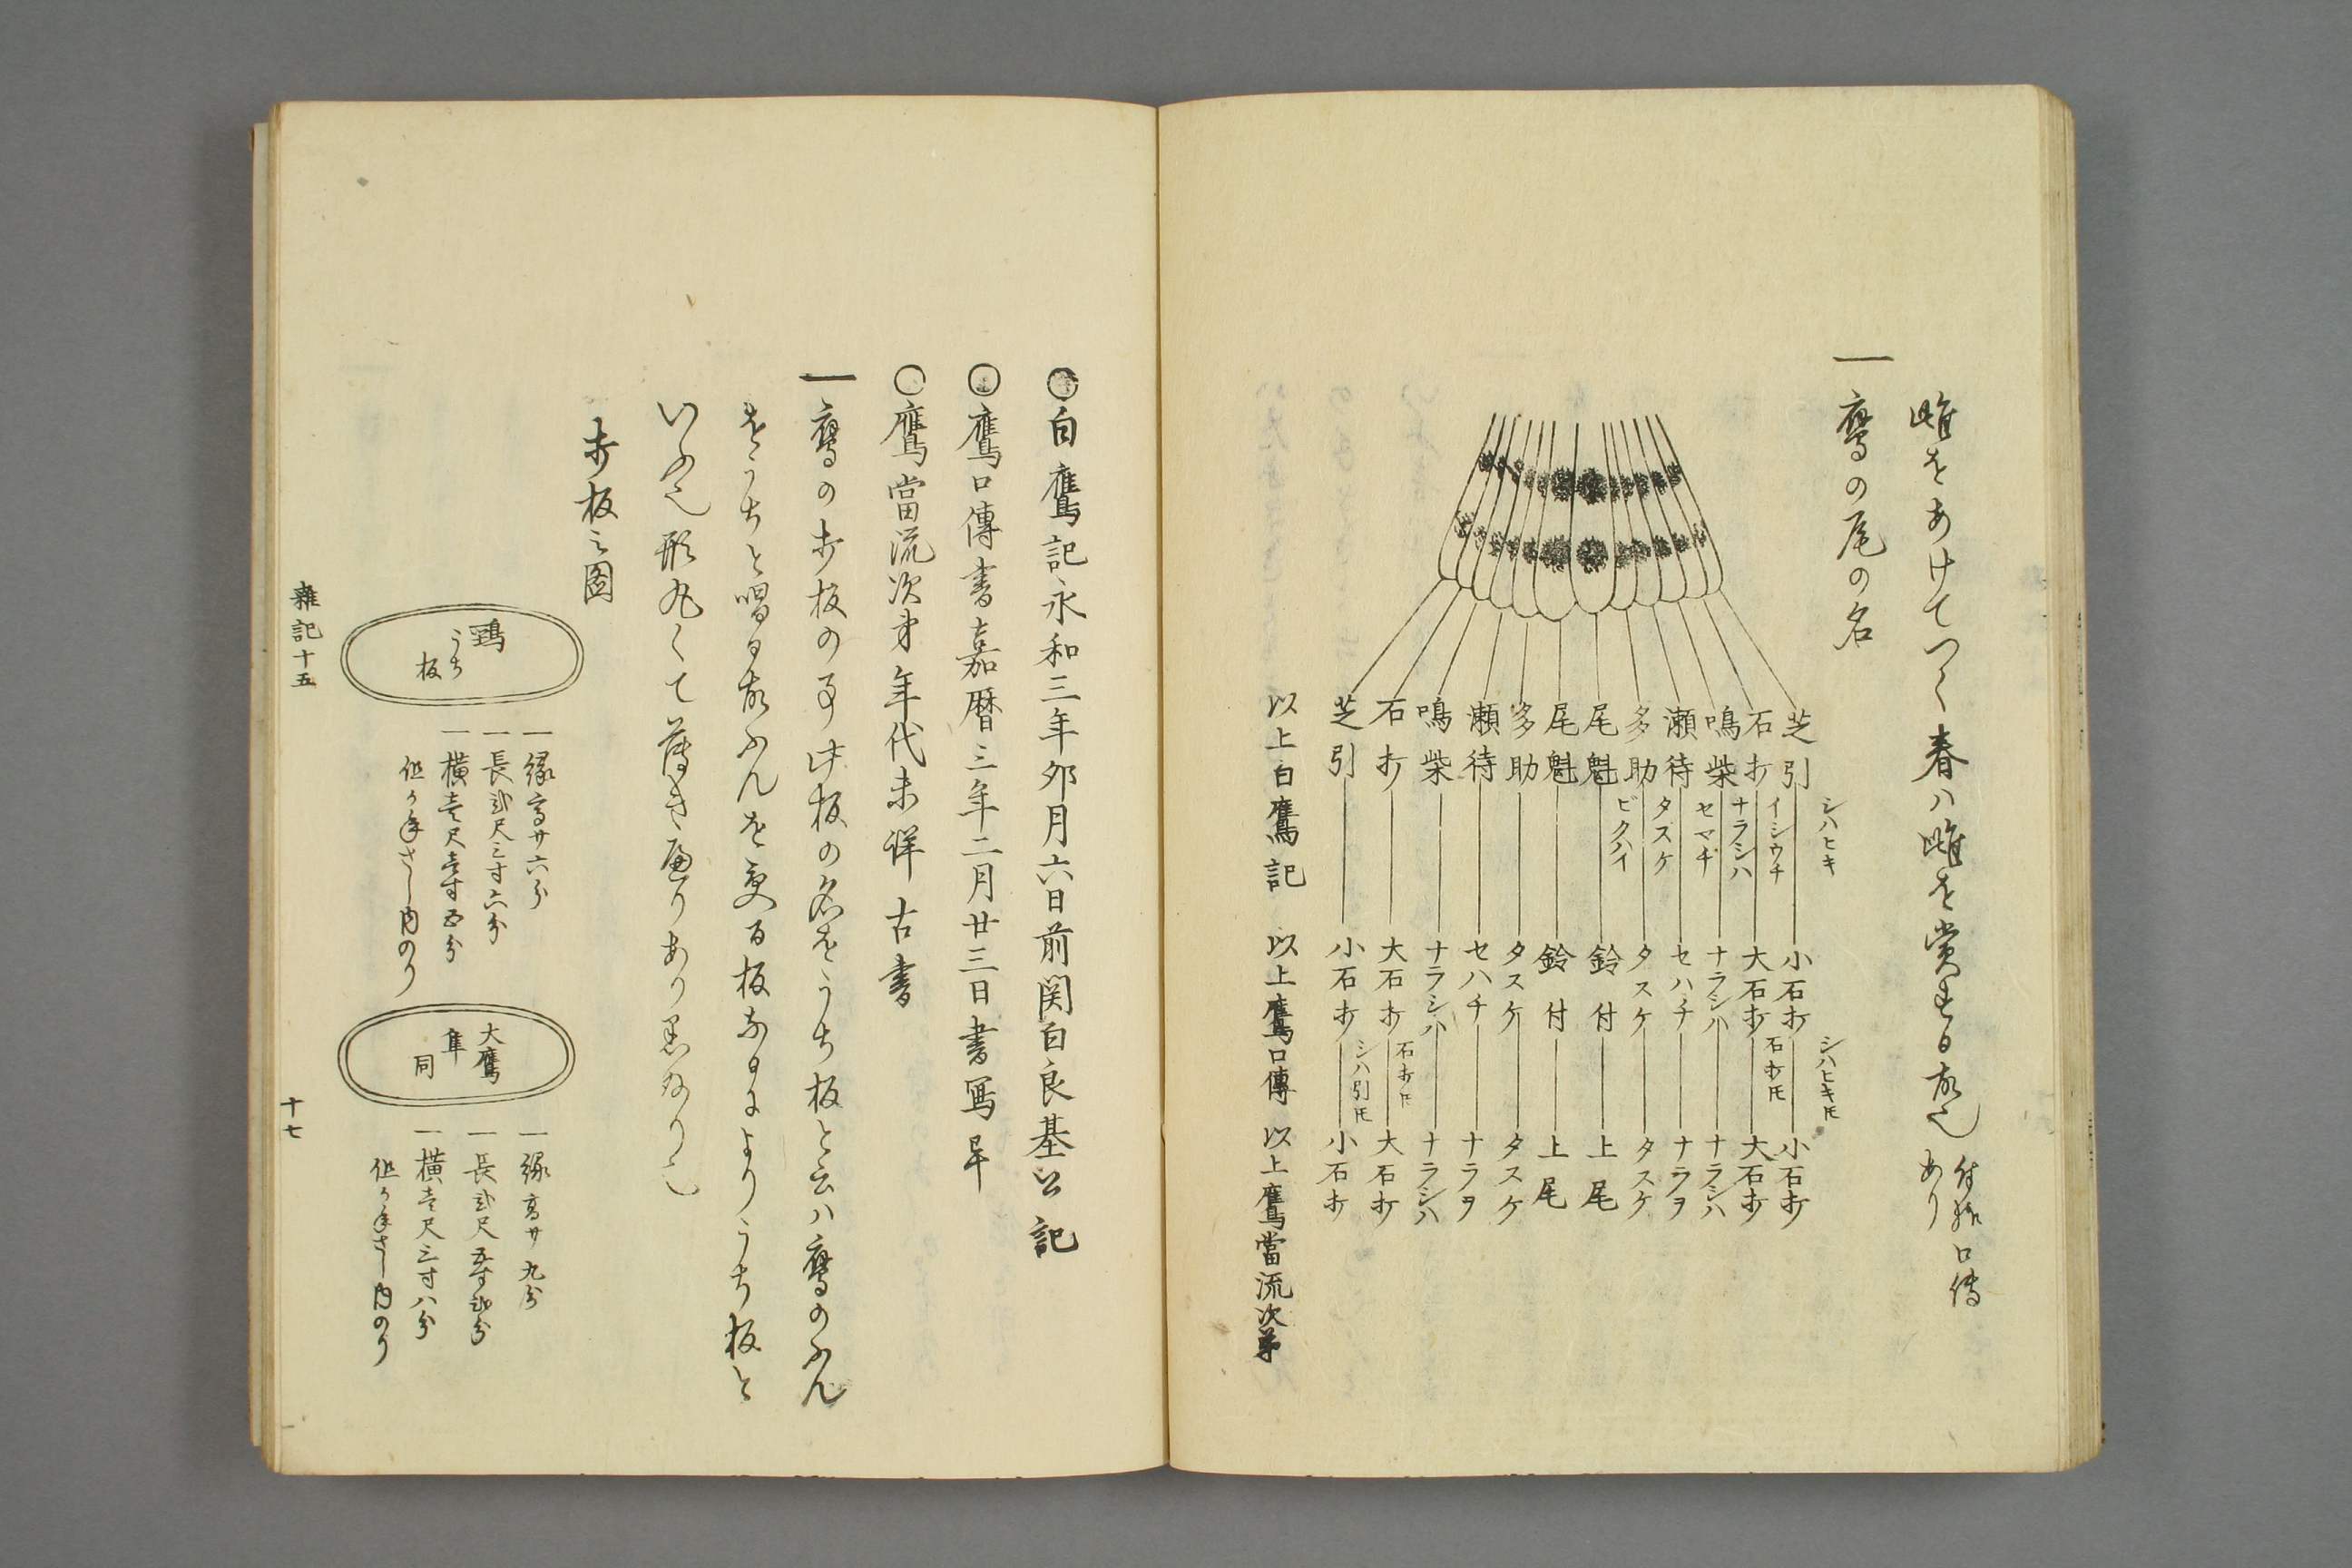 雌をあけてつく春ハ雌を賞する故也
付様口傳
あり
一 鷹の尾の名
芝引 シハヒキ 小石打 シハヒキ𪜈 小石打
石打 イシウチ 大石打 石打𪜈 大石打
鳴柴 ナラシハ ナラシハ ナラシハ
瀬待 セマチ セハチ ナラヲ
多助 タスケ タスケ タスケ
尾魁 ビクハイ 鈴付 上尾
尾魁 鈴付 上尾
多助 タスケ タスケ
瀬待 セハチ ナラヲ
鳴柴 ナラシハ ナラシハ
石打 大石打 石打𪜈 大石打
芝引 小石打 シハ引𪜈 小石打
以上白鷹記 以上鷹口傳 以上鷹當流次第
白鷹記永和三年卯月六日前関白良基公記
○鷹口傳書嘉暦三年二月廿三日書写畢
○鷹當流次第年代未詳 古書
一 鷹の打板の事此板の名をうち板と云ハ鷹のふん
をうちと唱る故ふんを受る板なるによりうち板と
いふ也形丸くて薄き縁りあり黒ぬり也
打板之圖
鵄
うち
板
一縁高サ六分
一長弐尺三寸六分
一横壱尺壱寸五分
但かねさし内のり
大鷹
隼
同
一縁高サ九分
一長弐尺五寸弐分
一横壱尺三寸八分
但かねさし内のり
雜記十五
十七